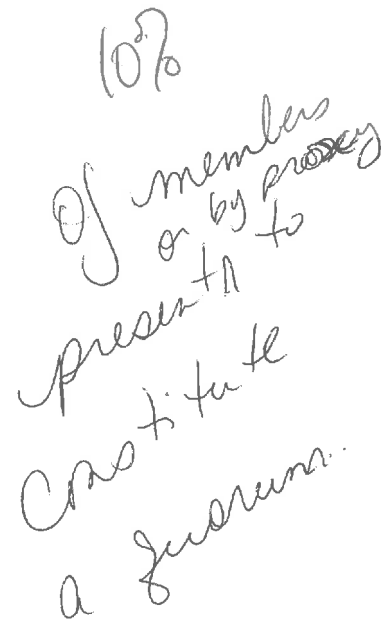 10%
Of members
or by proxy
present to
constitute
a quorum.